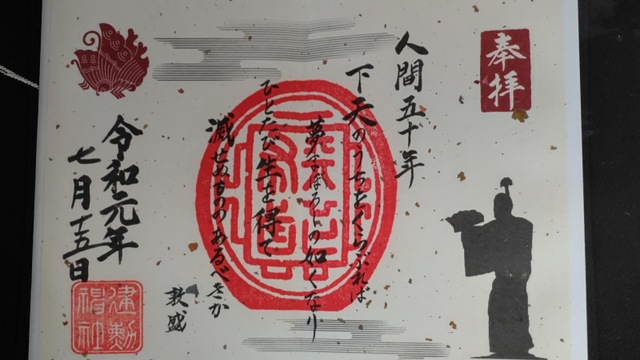 奉拝
人間五十年
下天のうちをくらぶれば
夢まぼろしの如くなり
ひとたび生を得て
滅せぬもののあるべきか
敦盛
令和元年
七月十五日
建勲神社